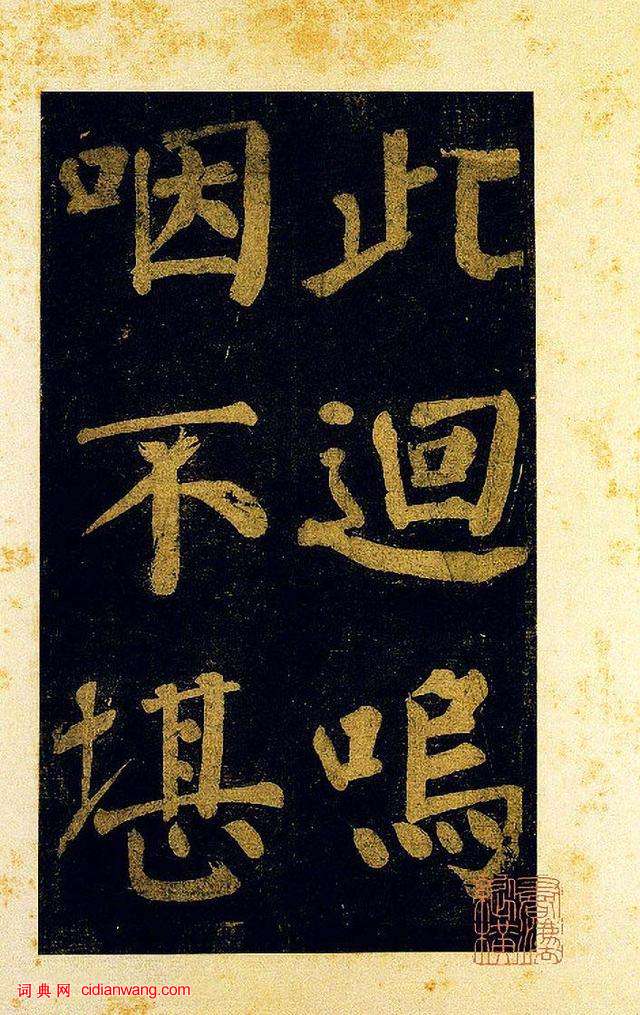 此迴嗚
咽不堪
词典网 cidianwang.com